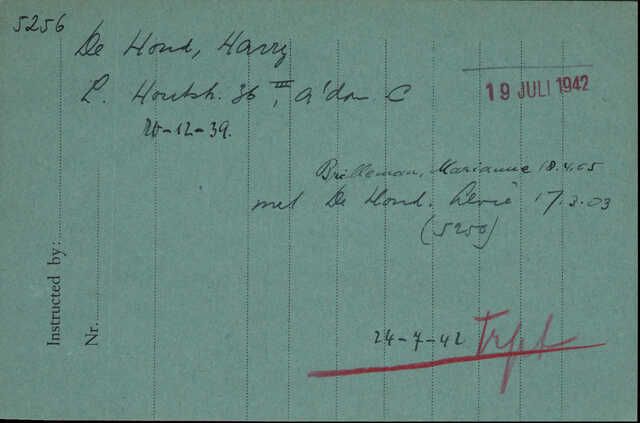 5256
De Hond, Harry
L. Houtstr. 36 III, A'dam C
19 JULI 1942
20-12-39.
Brilleman, Marianne 18.4.05
met De Hond. Levie 17.3.03
(5250)
Instructed by:
Nr.
24-7-42 Trspt